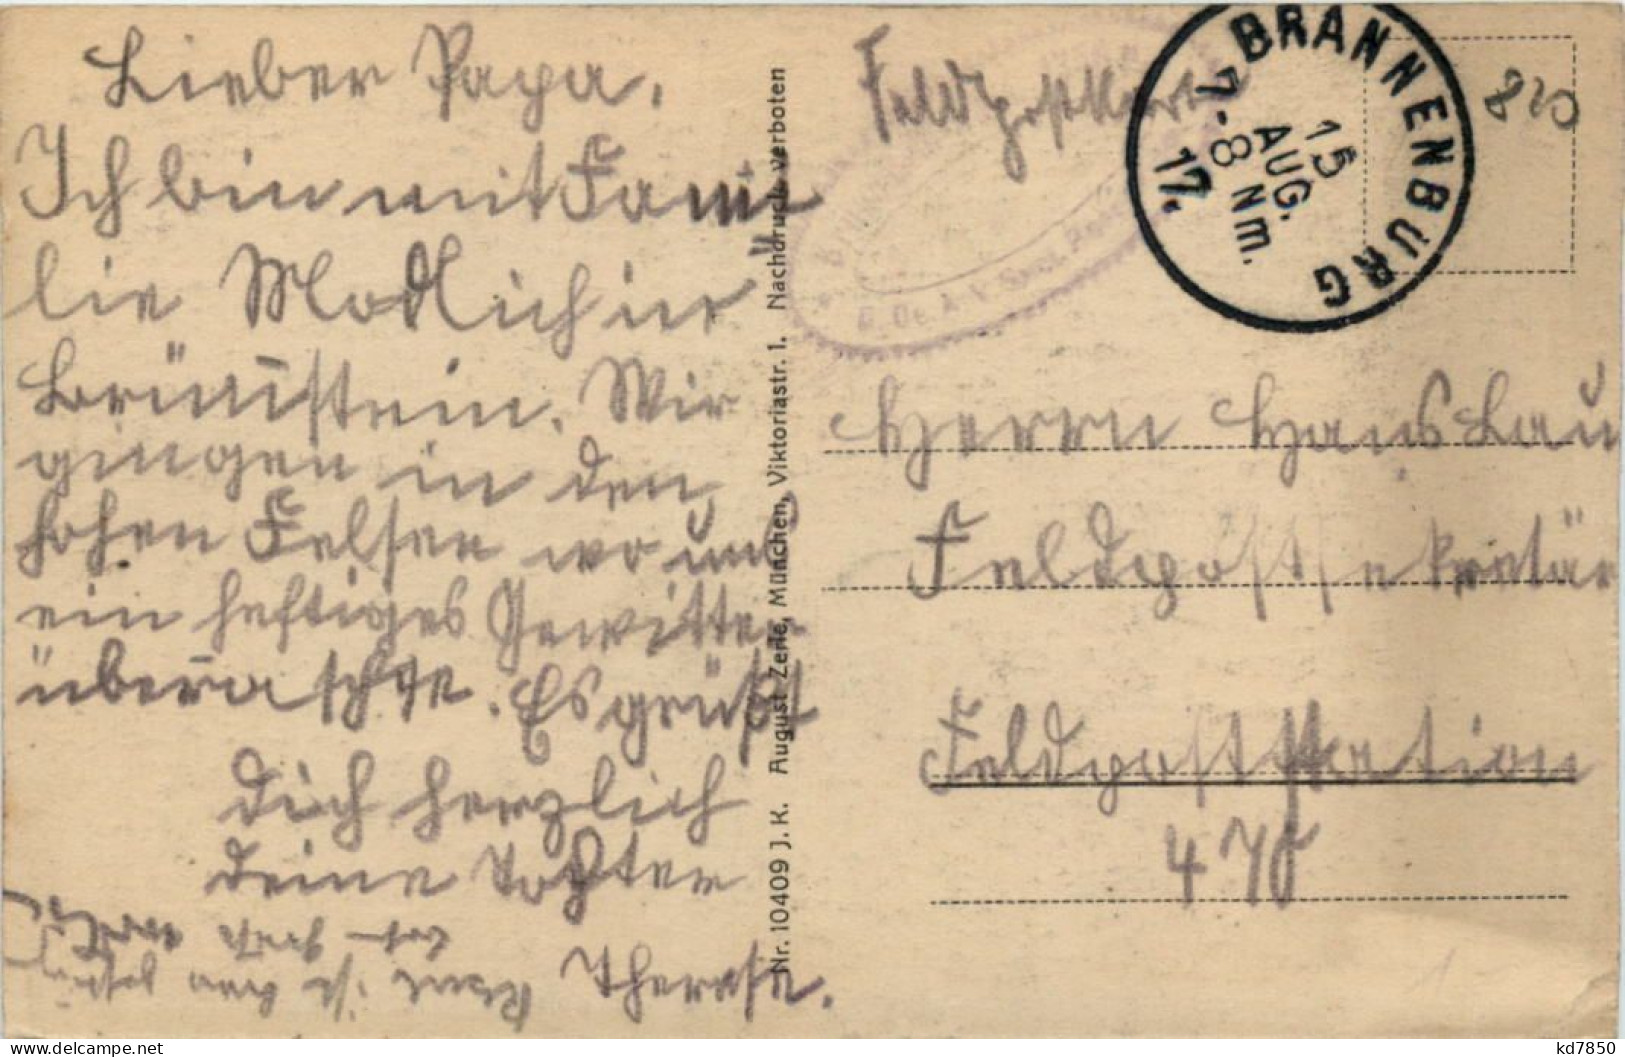 Lieber Papa.
Ich bin mit Fami
lie Modlich in
Brünnstein. Wir
gingen in den
hohen Felsen wo uns
ein heftiges Gewitter
überaschte. Es grüßt
Dich herzlich
deine Tochter
Therese.
Nr. 10409 J. K. August Zerle, München, Viktoriastr. 1. Nachdruck verboten
Feldpostkarte
BRANNENBURG
15
AUG.
7-8 Nm.
17.
820
Herrn Hans Lau
Feldpostsekretär
Feldpoststation
478
kd7850